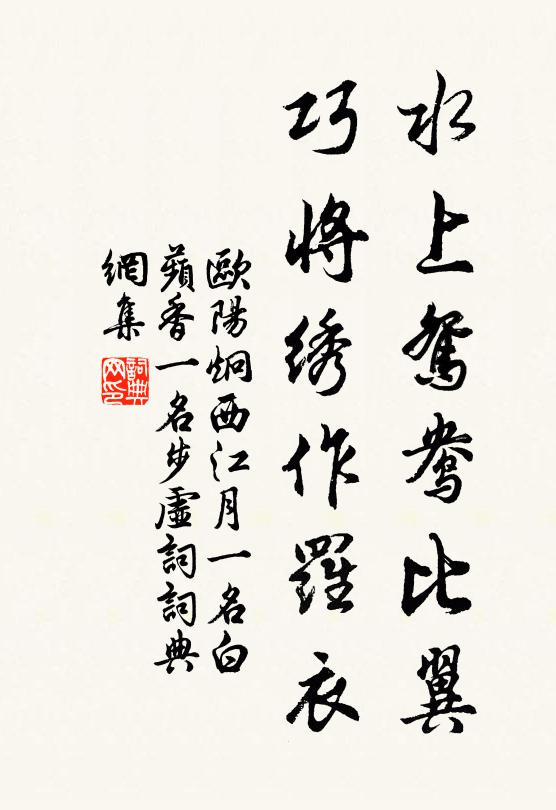 水上鴛鴦比翼
巧將绣作羅衣
歐陽炯西江月一名白
蘋香一名步虛詞詞典
網集
詞典
网印